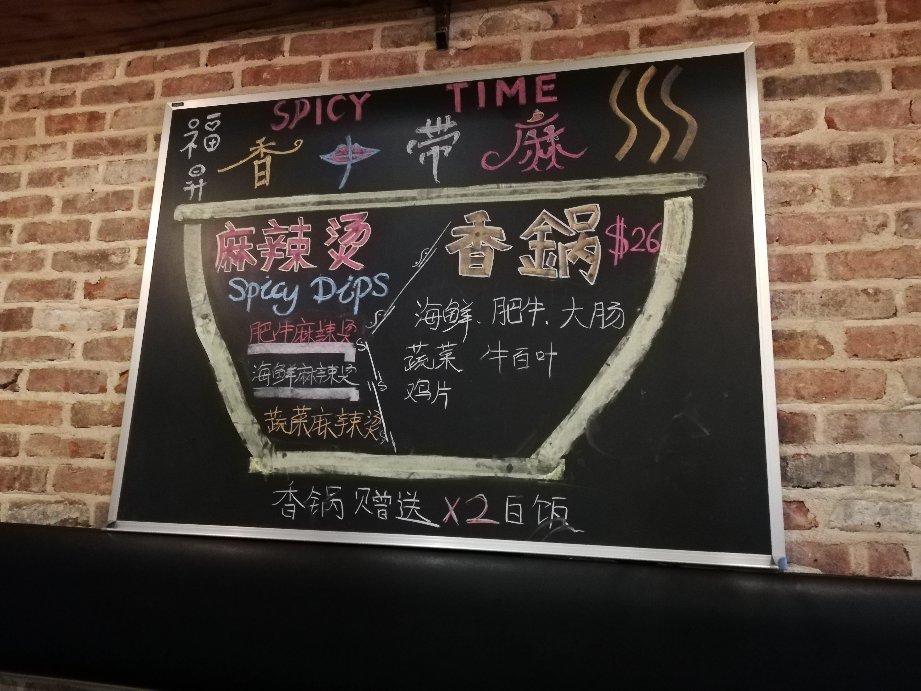 SPICY TIME
福昇
香中带麻
麻辣烫
Spicy Dips
肥牛麻辣烫
海鲜麻辣烫
蔬菜麻辣烫
香鍋 $26
海鲜、肥牛、大肠
蔬菜 牛百叶
鸡片
香锅赠送 X2白饭